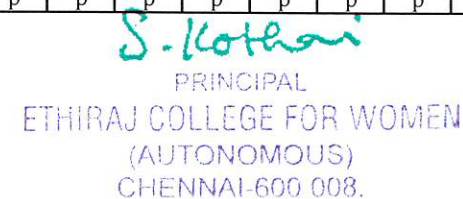 p p p p p p p p
S. Kothai
PRINCIPAL
ETHIRAJ COLLEGE FOR WOMEN
(AUTONOMOUS)
CHENNAI-600 008.